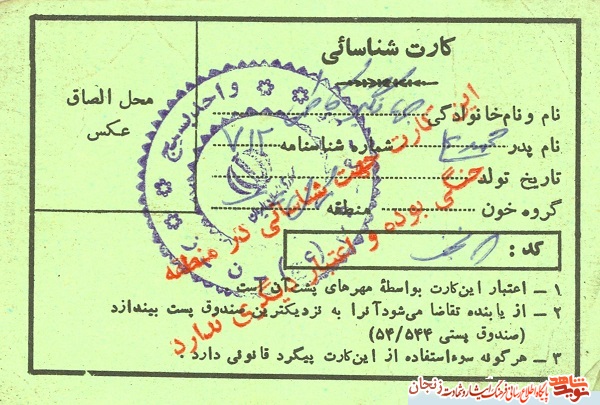 کارت شناسائی
محل الصاق
عکس
نام و نام خانوادگی
نام پدر شماره شناسنامه ۷۱۲
تاریخ تولد
گروه خون منطقه
کد :
این کارت جهت شناسائی در منطقه
جنگی بوده و اعتبار دیگری ندارد
واحد بسیج
۱ ــ اعتبار این کارت بواسطهٔ مهرهای پشت آن است
۲ ــ از یابنده تقاضا می‌شود آنرا به نزدیکترین صندوق پست بیندازد
(صندوق پستی ۵۴/۵۴۴)
۳ ــ هرگونه سوءاستفاده از این کارت پیگرد قانونی دارد .
نوید شاهد
پایگاه اطلاع رسانی فرهنگ ایثار و شهادت زنجان